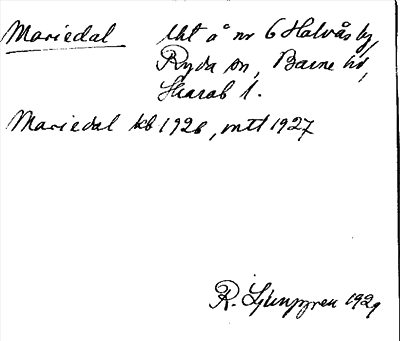 Mariedal Uht å nr 6 Halvås by,
Ryda sn, Barne hd,
Skarab l.
Mariedal kb 1926, mtl 1927
R. Ljunggren 1929